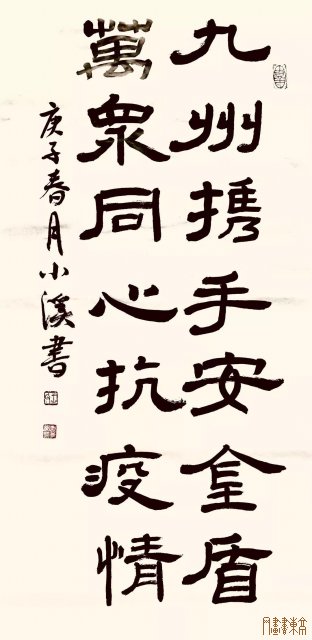 九州携手安金盾
萬衆同心抗疫情
庚子春月小溪書